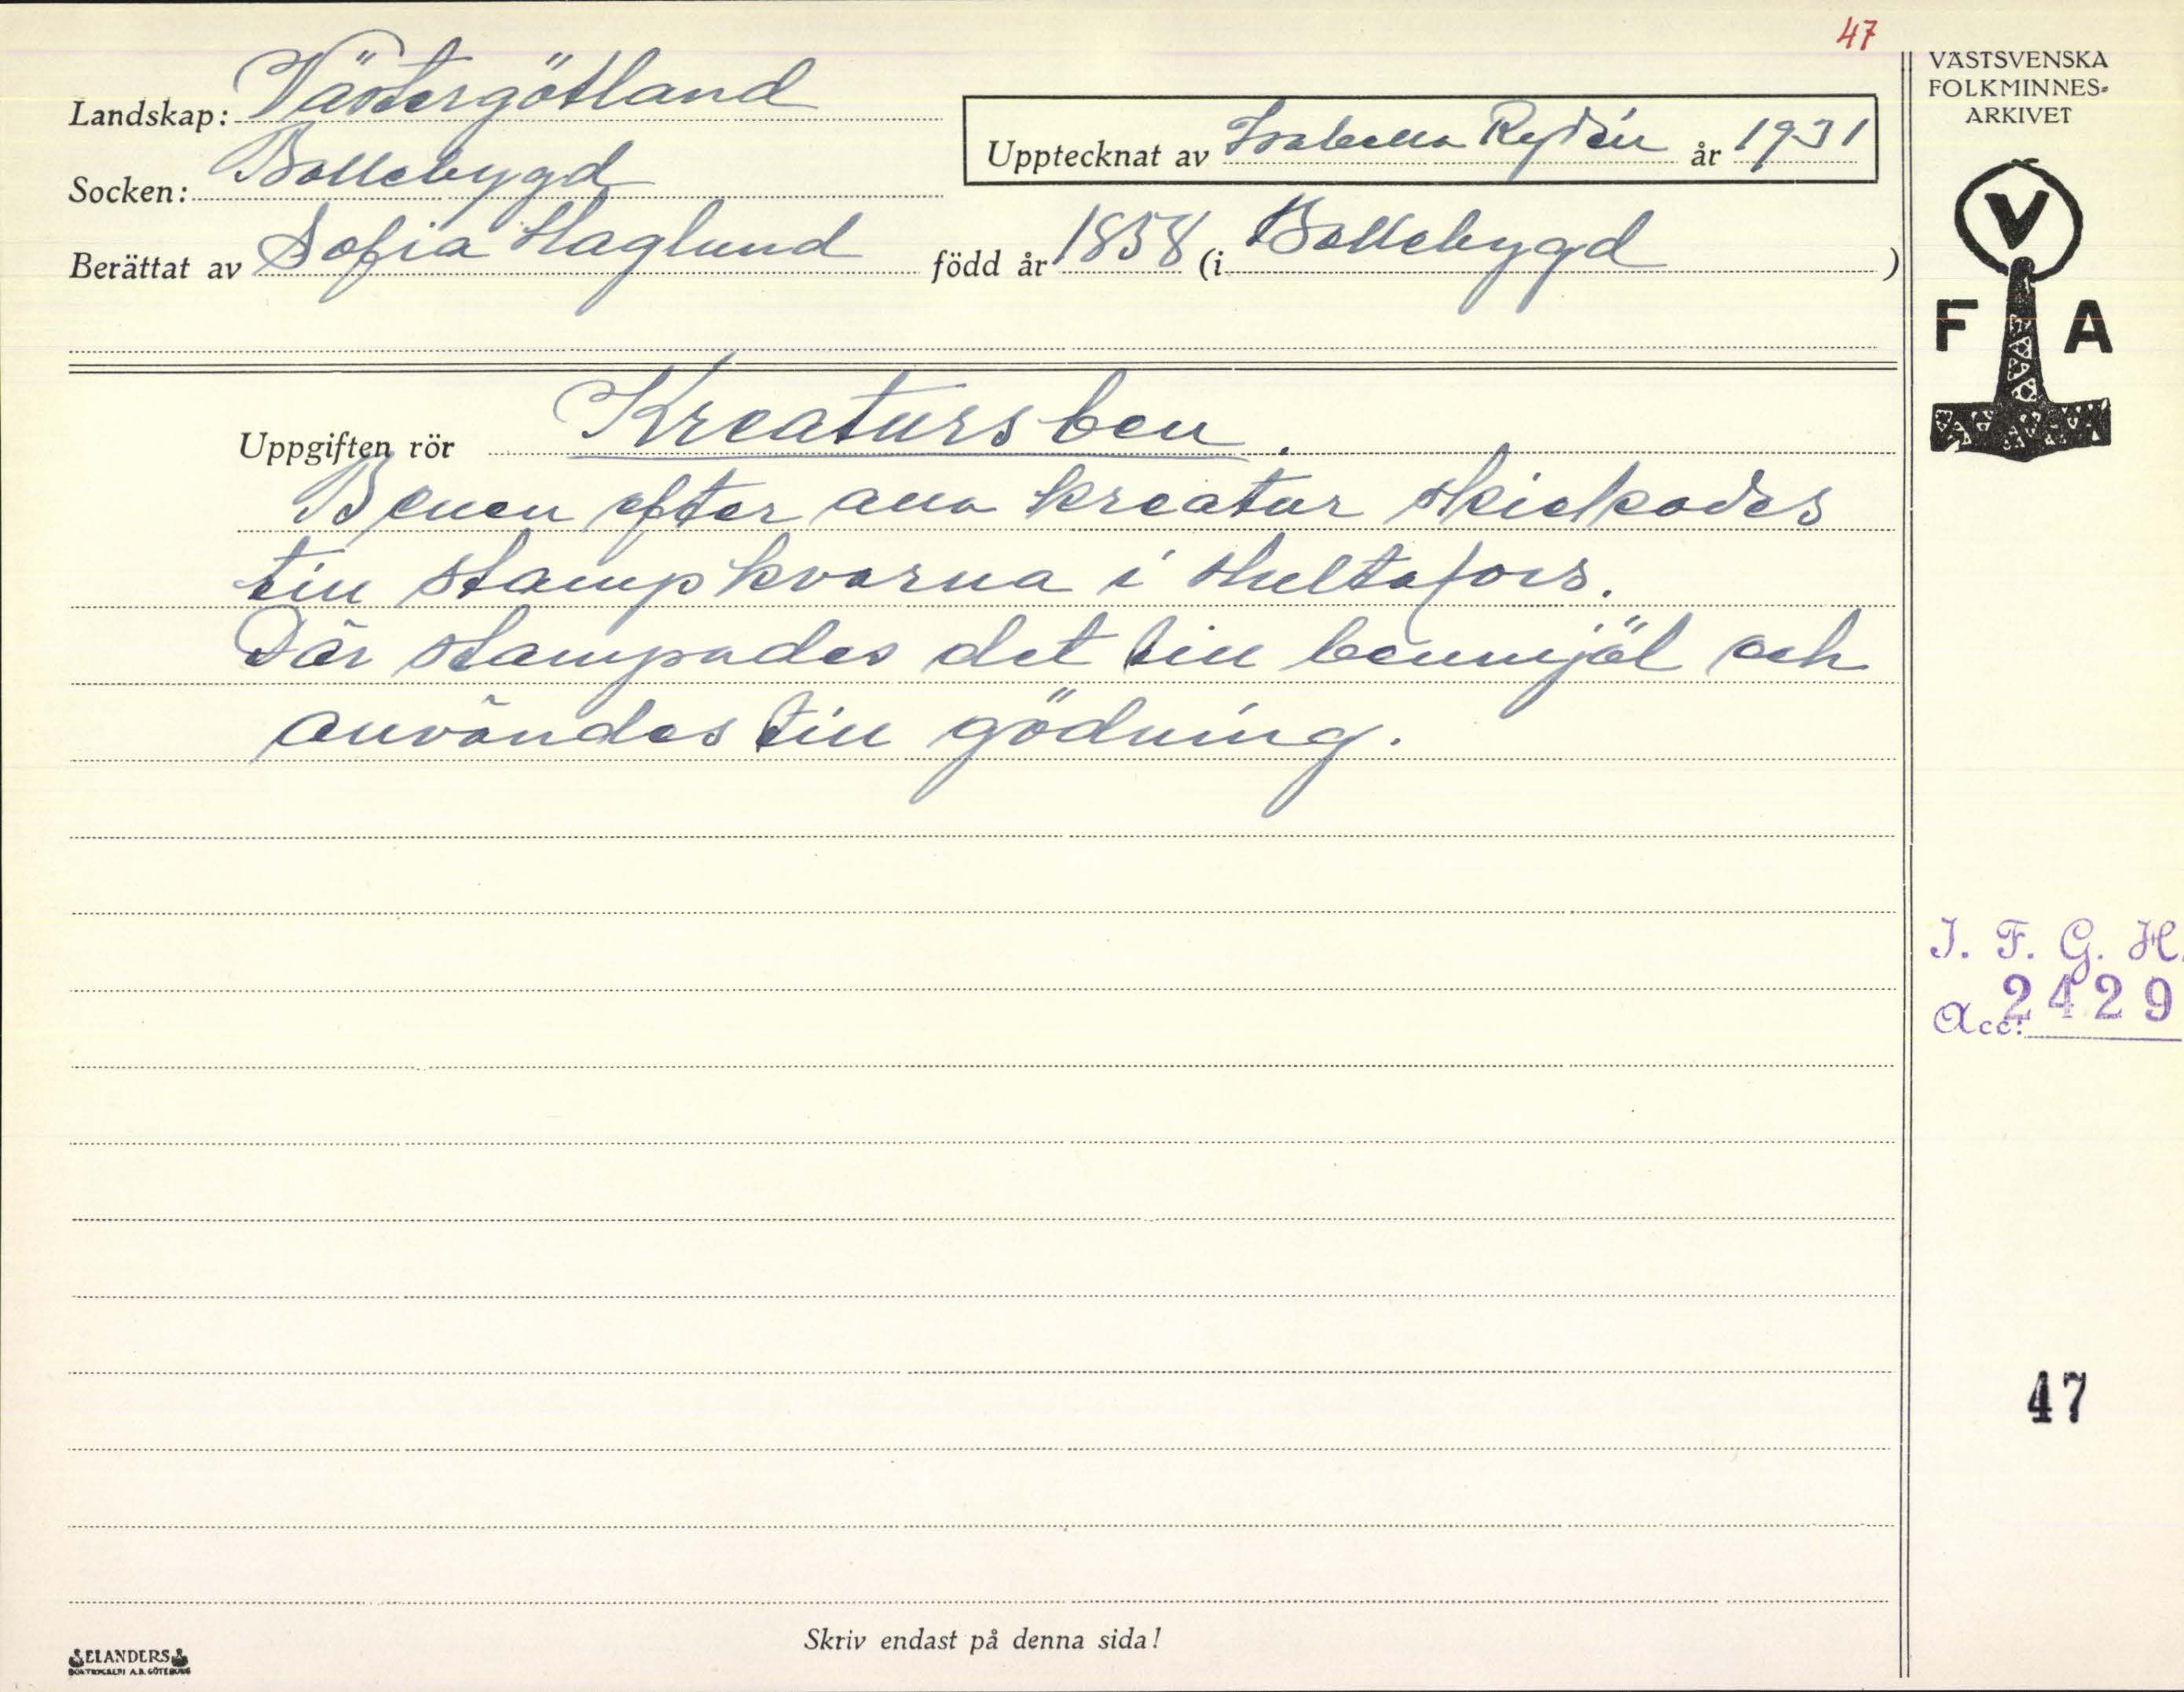 47
VÄSTSVENSKA
FOLKMINNES-
ARKIVET
Landskap: Västergötland
Upptecknat av Isabella Rydén år 1931
Socken: Bollebygd
Berättat av Sofia Haglund född år 1858 (i Bollebygd)
V
F A
Uppgiften rör Kreatursben.
Benen efter alla kreatur skickades
till stampkvarna i Hultafors.
Där stampades det till benmjöl och
användes till gödning.
I. F. G. H.
Acc: 2429
47
Skriv endast på denna sida!
ELANDERS
BOKTRYCKERI A.B. GÖTEBORG